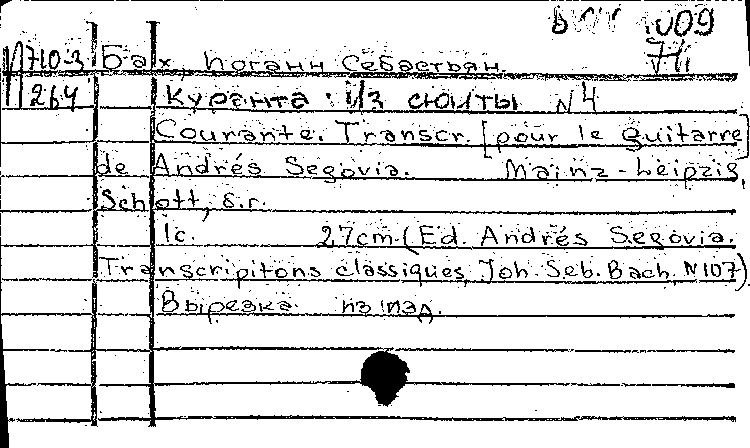 П710-3 Бах, Иоганн Себастьян.
264 Куранта: из сюиты N4
Courante. Transcr. [pour le guitarre]
de Andrés Segovia. Mainz-Leipzig,
Schott, s.r.
1c. 27cm (Ed. Andrés Segovia.
Transcripitons classiques, Joh. Seb. Bach, N107)
Вырезка из изд.